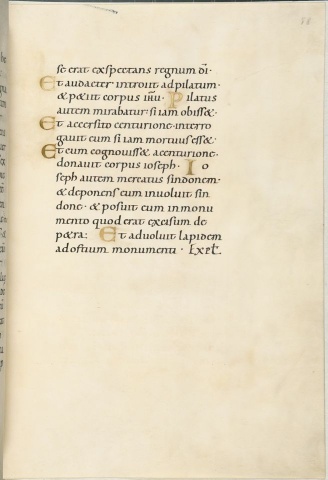 se erat exspectans regnum dī·
Et audacter introiit ad pilatum·
& petiit corpus ihū· Pilatus
autem mirabatur· si iam obisset·
Et accersito centurione· interro
gavit eum si iam mortuus esset·
Et cum cognovisset a centurione·
donavit corpus ioseph· Io
seph autem mercatus sindonem·
& deponens eum involuit sin
done· & posuit eum in monu
mento quod erat excisum de
petra· Et advoluit lapidem
ad ostium monumenti· Expƚ.